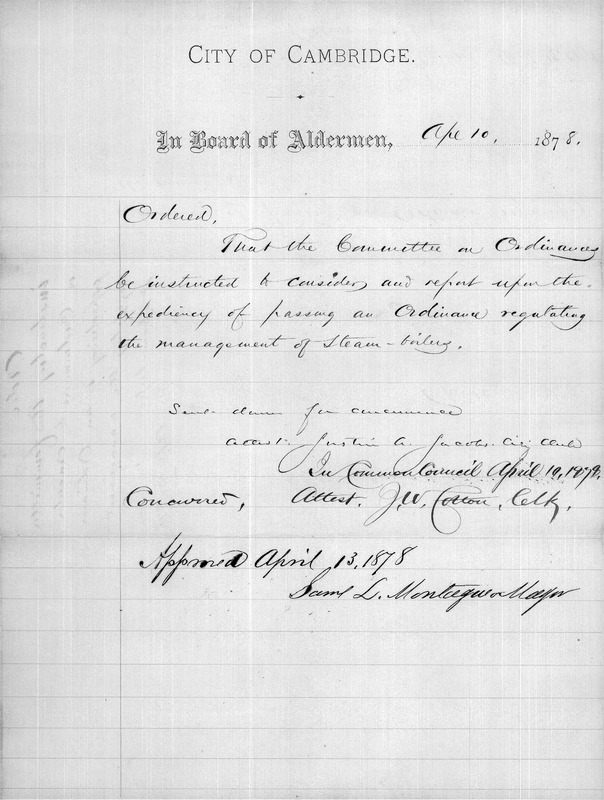 CITY OF CAMBRIDGE.
In Board of Aldermen, Apl 10, 1878.
Ordered,
That the Committee on Ordinances
be instructed to consider and report upon the
expediency of passing an Ordinance regulating
the management of Steam-boilers.
Sent down for concurrence
attest. Justin A. Jacobs. City Clerk
In Common Council April 10, 1878.
Concurred, Attest. J. W. Cotton, Clk.
Approved April 13, 1878
Saml L. Montague Mayor